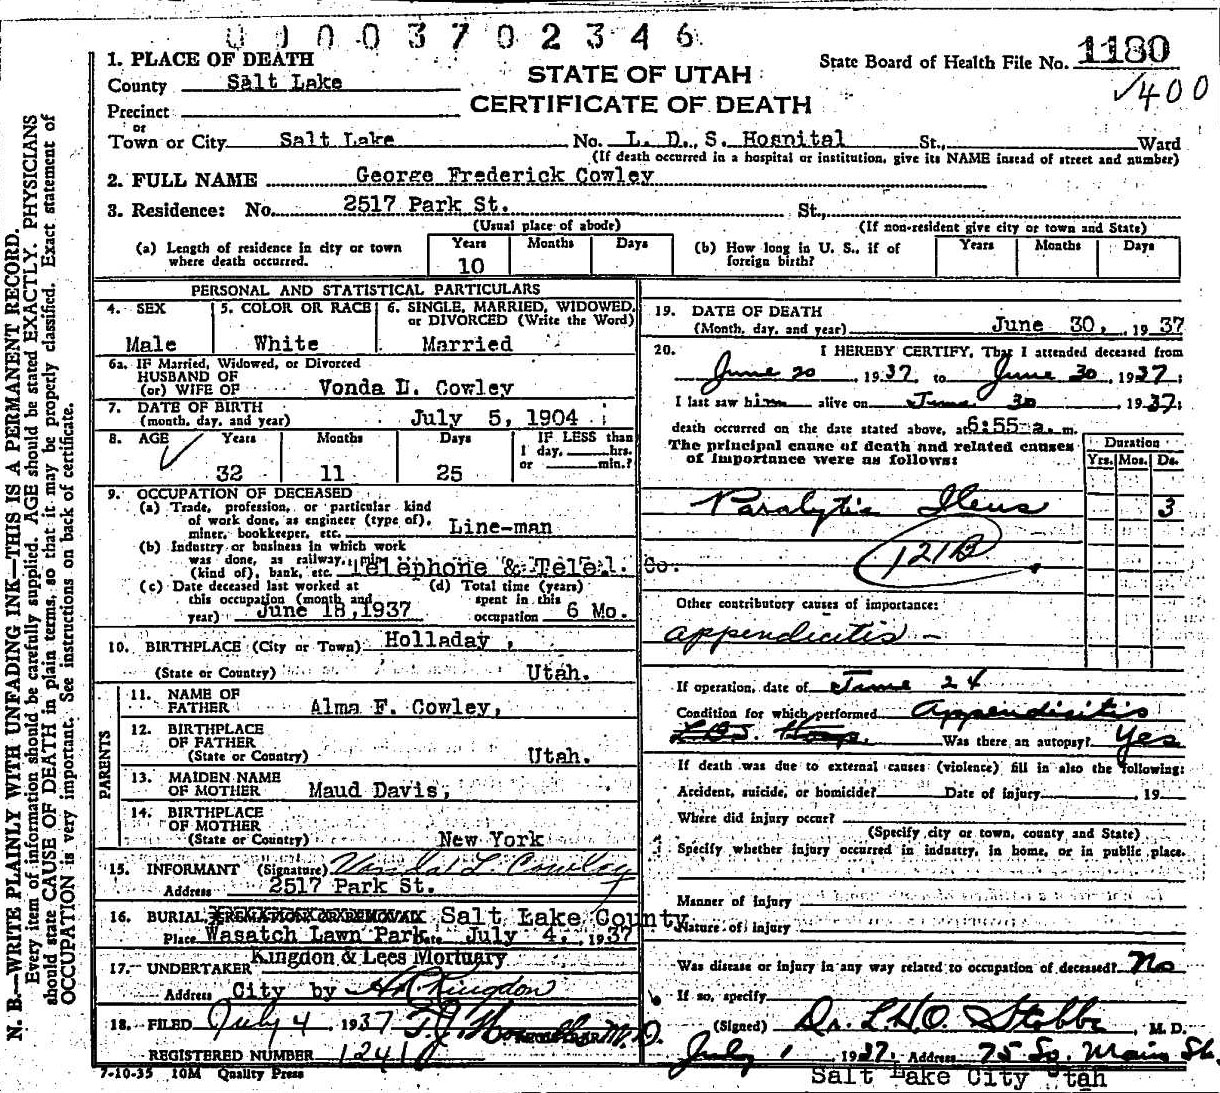 0 1 0 0 3 7 0 2 3 4 6
State Board of Health File No. 1180
✓400
STATE OF UTAH
CERTIFICATE OF DEATH
1. PLACE OF DEATH
County Salt Lake
Precinct
or
Town or City Salt Lake No. L. D. S. Hospital St., Ward
(If death occurred in a hospital or institution, give its NAME instead of street and number)
2. FULL NAME George Frederick Cowley
3. Residence: No. 2517 Park St. St.,
(Usual place of abode) (If non-resident give city or town and State)
(a) Length of residence in city or town where death occurred. Years 10 Months Days
(b) How long in U. S., if of foreign birth? Years Months Days
PERSONAL AND STATISTICAL PARTICULARS
4. SEX Male
5. COLOR OR RACE White
6. SINGLE, MARRIED, WIDOWED, or DIVORCED (Write the Word) Married
6a. IF Married, Widowed, or Divorced
HUSBAND OF
(or) WIFE OF Vonda L. Cowley
7. DATE OF BIRTH
(month, day, and year) July 5, 1904
8. AGE Years 32 Months 11 Days 25 IF LESS than
1 day, hrs.
or min.?
9. OCCUPATION OF DECEASED
(a) Trade, profession, or particular kind
of work done, as engineer (type of),
miner, bookkeeper, etc. Line-man
(b) Industry or business in which work
was done, as railway, mine
(kind of), bank, etc. Telephone & Telel. Co.
(c) Date deceased last worked at
this occupation (month and
year) June 18, 1937
(d) Total time (years)
spent in this
occupation 6 Mo.
10. BIRTHPLACE (City or Town) Holladay,
(State or Country) Utah.
PARENTS
11. NAME OF
FATHER Alma F. Cowley,
12. BIRTHPLACE
OF FATHER
(State or Country) Utah.
13. MAIDEN NAME
OF MOTHER Maud Davis,
14. BIRTHPLACE
OF MOTHER
(State or Country) New York
15. INFORMANT (Signature) Vonda L. Cowley
Address 2517 Park St.
16. BURIAL, CREMATION OR REMOVAL Salt Lake County
Place Wasatch Lawn Park Date July 4, 1937
17. UNDERTAKER Kingdon & Lees Mortuary
Address City by Kingdon
18. FILED July 4, 1937 M.D.
REGISTERED NUMBER 1241
7-10-35 10M Quality Press
19. DATE OF DEATH
(Month, day, and year) June 30, 1937
20. I HEREBY CERTIFY, That I attended deceased from
June 20, 1937, to June 30, 1937;
I last saw him alive on June 30 1937;
death occurred on the date stated above, at 6:55 a. m.
The principal cause of death and related causes
of importance were as follows:
Duration
Yrs. Mos. Ds.
Paralytic Ileus 3
121B
Other contributory causes of importance:
appendicitis -
If operation, date of June 24
Condition for which performed Appendicitis
LDS Hosp. Was there an autopsy? Yes
If death was due to external causes (violence) fill in also the following:
Accident, suicide, or homicide? Date of injury , 19
Where did injury occur?
(Specify city or town, county and State)
Specify whether injury occurred in industry, in home, or in public place.
Manner of injury
Nature of injury
Was disease or injury in any way related to occupation of deceased? No
If so, specify
(Signed) Dr. L.H.O. Stobbe, M. D.
July 1 1937. Address 75 So. Main St.
Salt Lake City Utah
N. B.—WRITE PLAINLY WITH UNFADING INK—THIS IS A PERMANENT RECORD.
Every item of information should be carefully supplied. AGE should be stated EXACTLY. PHYSICIANS
should state CAUSE OF DEATH in plain terms, so that it may be properly classified. Exact statement of
OCCUPATION is very important. See instructions on back of certificate.